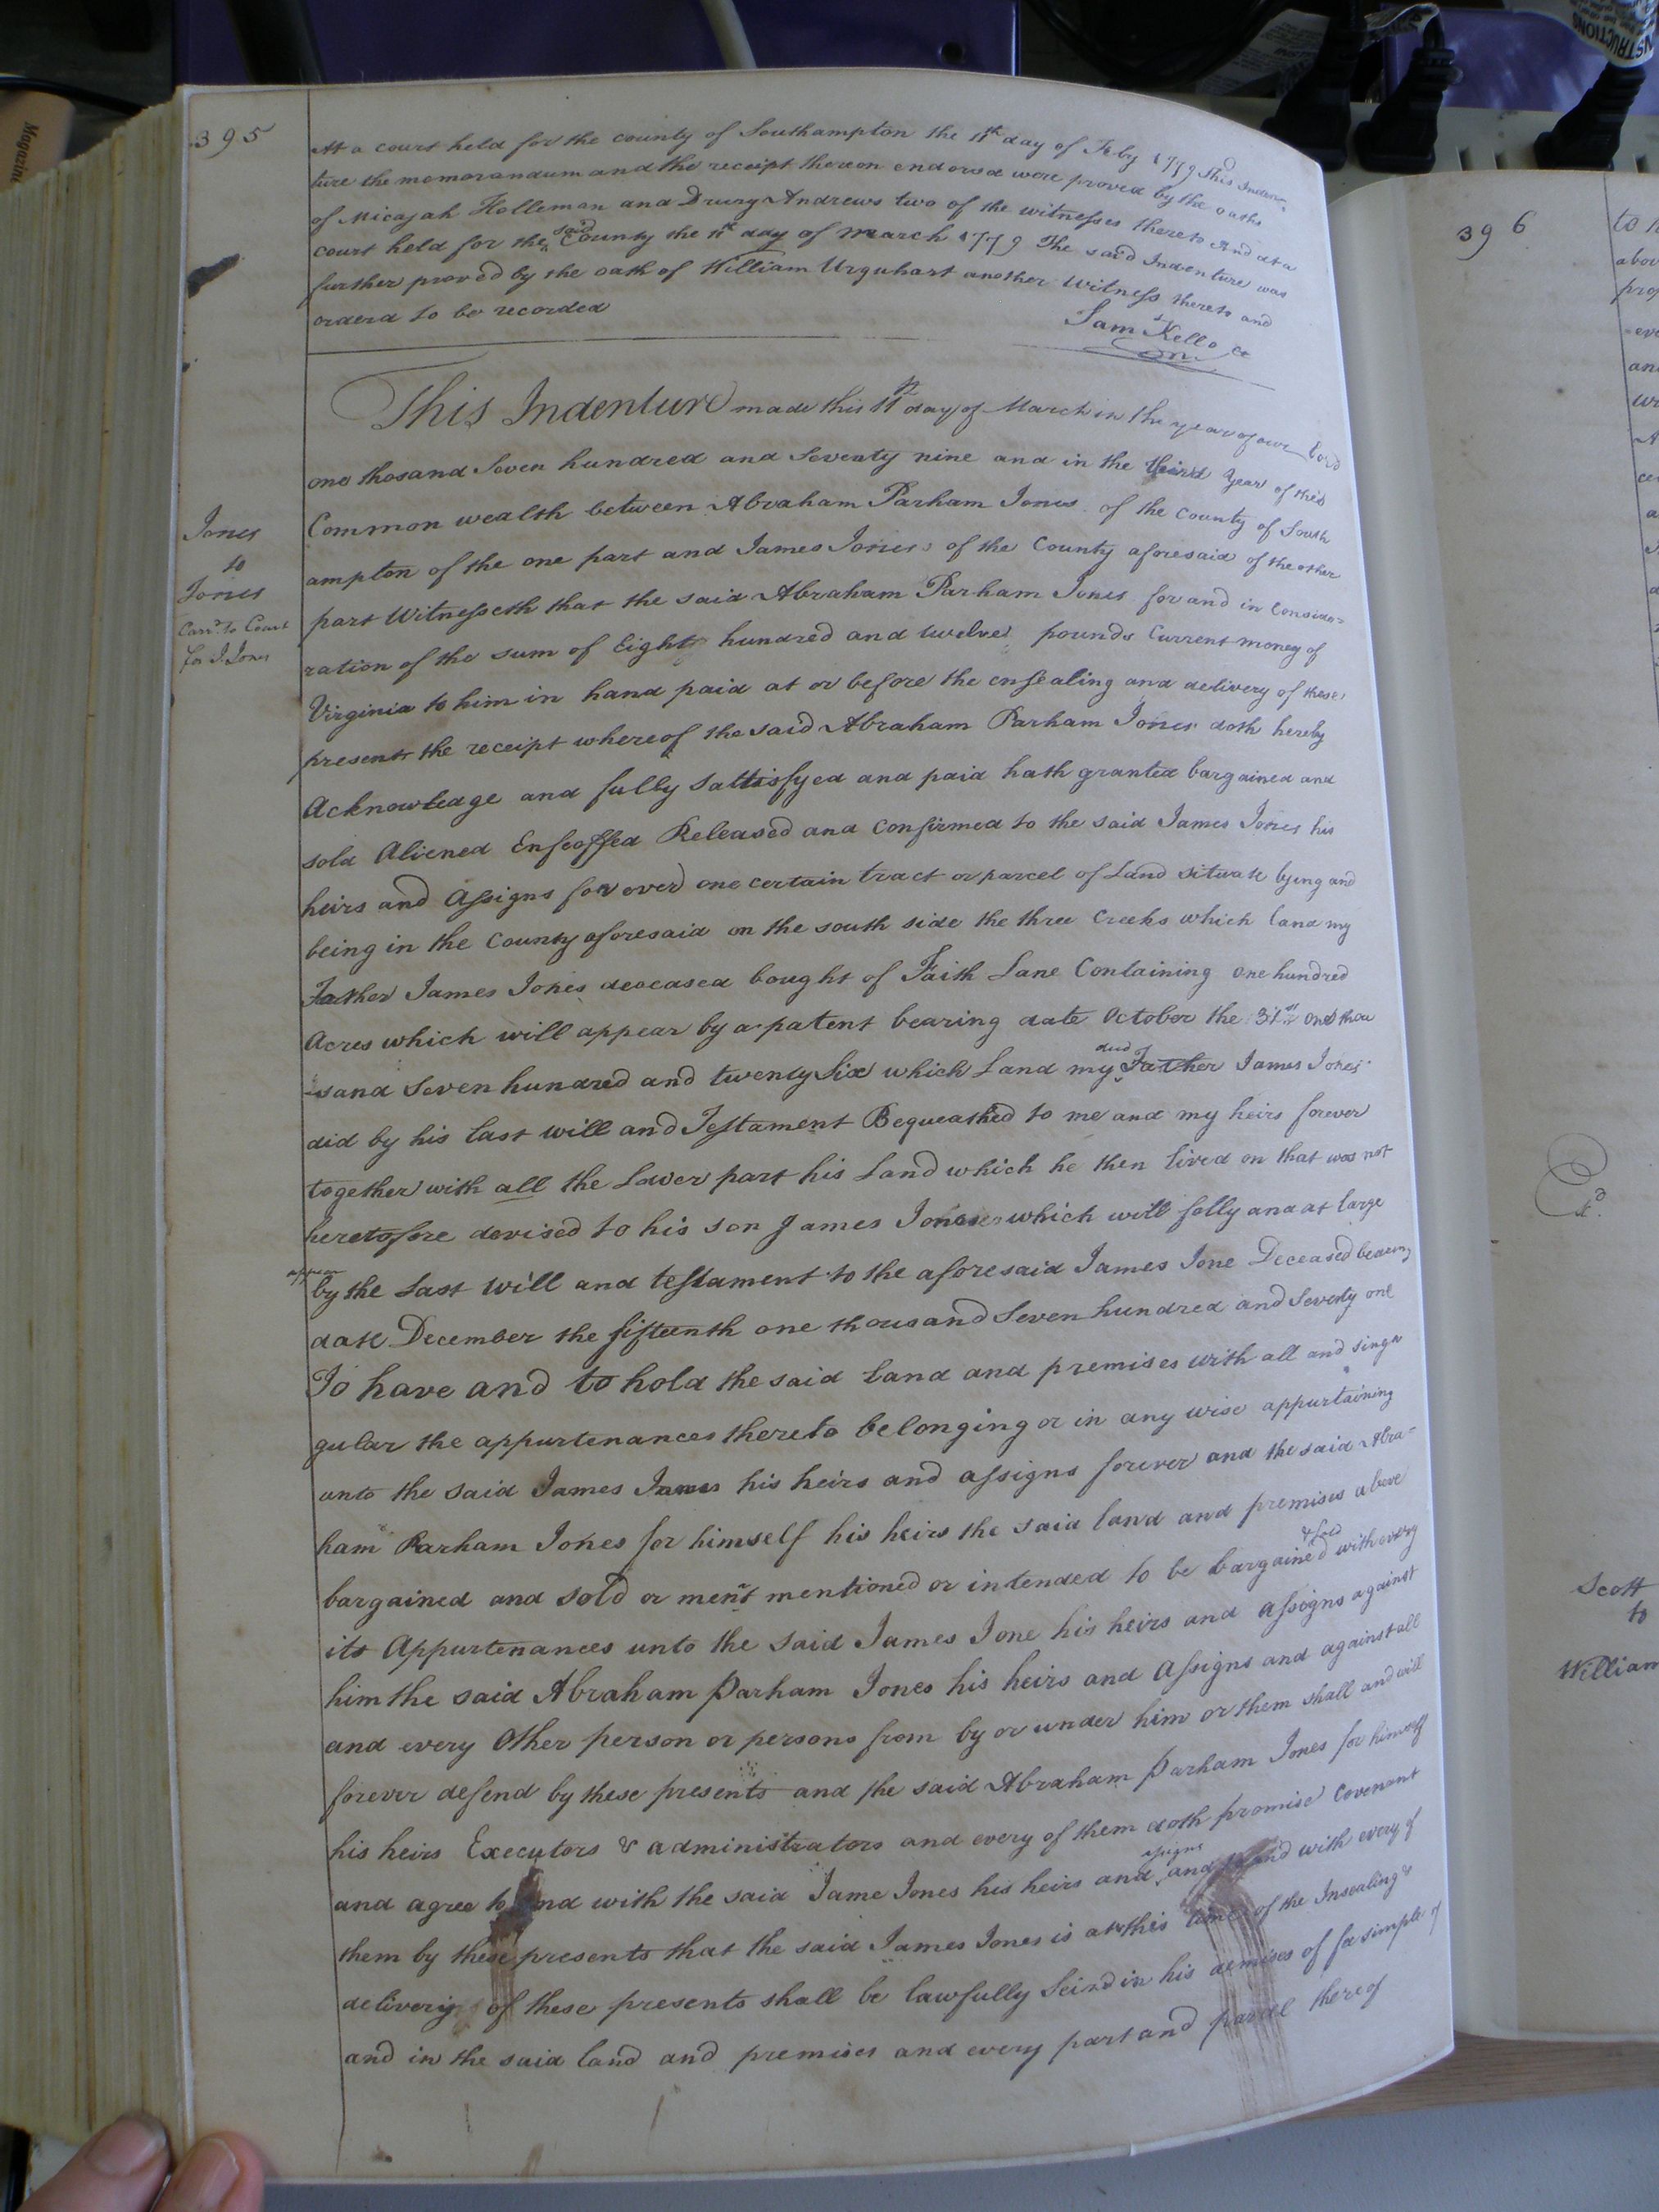 395
At a court held for the county of Southampton the 11th day of Feby 1779 This Inden-
ture the memorandum and the receipt thereon endorsed were proved by the oaths
of Micajah Holleman and Drury Andrews two of the witnesses thereto And at a
court held for the said County the 11th day of March 1779 The said Indenture was
further proved by the oath of William Urquhart another Witness thereto and
orderd to be recorded
Sam Kello
This Indenture made this 11th day of March in the year of our Lord
one thosand Seven hundred and Seventy nine and in the third Year of this
Common wealth between Abraham Parham Jones of the County of South
ampton of the one part and James Jones of the County aforesaid of the other
part Witnesseth that the said Abraham Parham Jones for and in Conside-
ration of the sum of Eight hundred and twelve pounds Current money of
Virginia to him in hand paid at or before the ensealing and delivery of these
presents the receipt whereof the said Abraham Parham Jones doth hereby
Acknowledge and fully Sattisfyed and paid hath granted bargained and
sold Aliened Enfeoffed Released and Confirmed to the said James Jones his
heirs and Assigns for ever one certain tract or parcel of Land situate lying and
being in the County aforesaid on the south side the three Creeks which land my
Father James Jones deceased bought of Faith Lane Containing one hundred
Acres which will appear by a patent bearing date October the 31st one thou
-sand Seven hundred and twenty Six which Land my decd Father James Jones
did by his last will and Testament Bequeathed to me and my heirs forever
together with all the Lower part his Land which he then lived on that was not
heretofore devised to his son James Jones which will folly and at large
appear by the Last Will and testament to the aforesaid James Jone Deceased bearing
date December the fifteenth one thousand Seven hundred and Seventy one
To have and to hold the said Land and premises with all and singu
gular the appurtenances thereto belonging or in any wise appurtaining
unto the said James Jones his heirs and assigns forever and the said Abra-
ham Parham Jones for himself his heirs the said land and premises above
bargained and sold or ment mentioned or intended to be bargained & sold with every
its Appurtenances unto the said James Jone his heirs and Assigns against
him the said Abraham Parham Jones his heirs and Assigns and against all
and every Other person or persons from by or under him or them shall and will
forever defend by these presents and the said Abraham Parham Jones for himself
his heirs Executors & administrators and every of them doth promise Covenant
and agree to and with the said Jame Jones his heirs and assigns and to and with every of
them by these presents that the said James Jones is at this time of the Insealing &
delivery of these presents shall be lawfully Seizd in his demises of fee simple of
and in the said land and premises and every part and parcel thereof
Jones
to
Jones
Carrd. to Court
for J. Jones
396
Scott
to
William